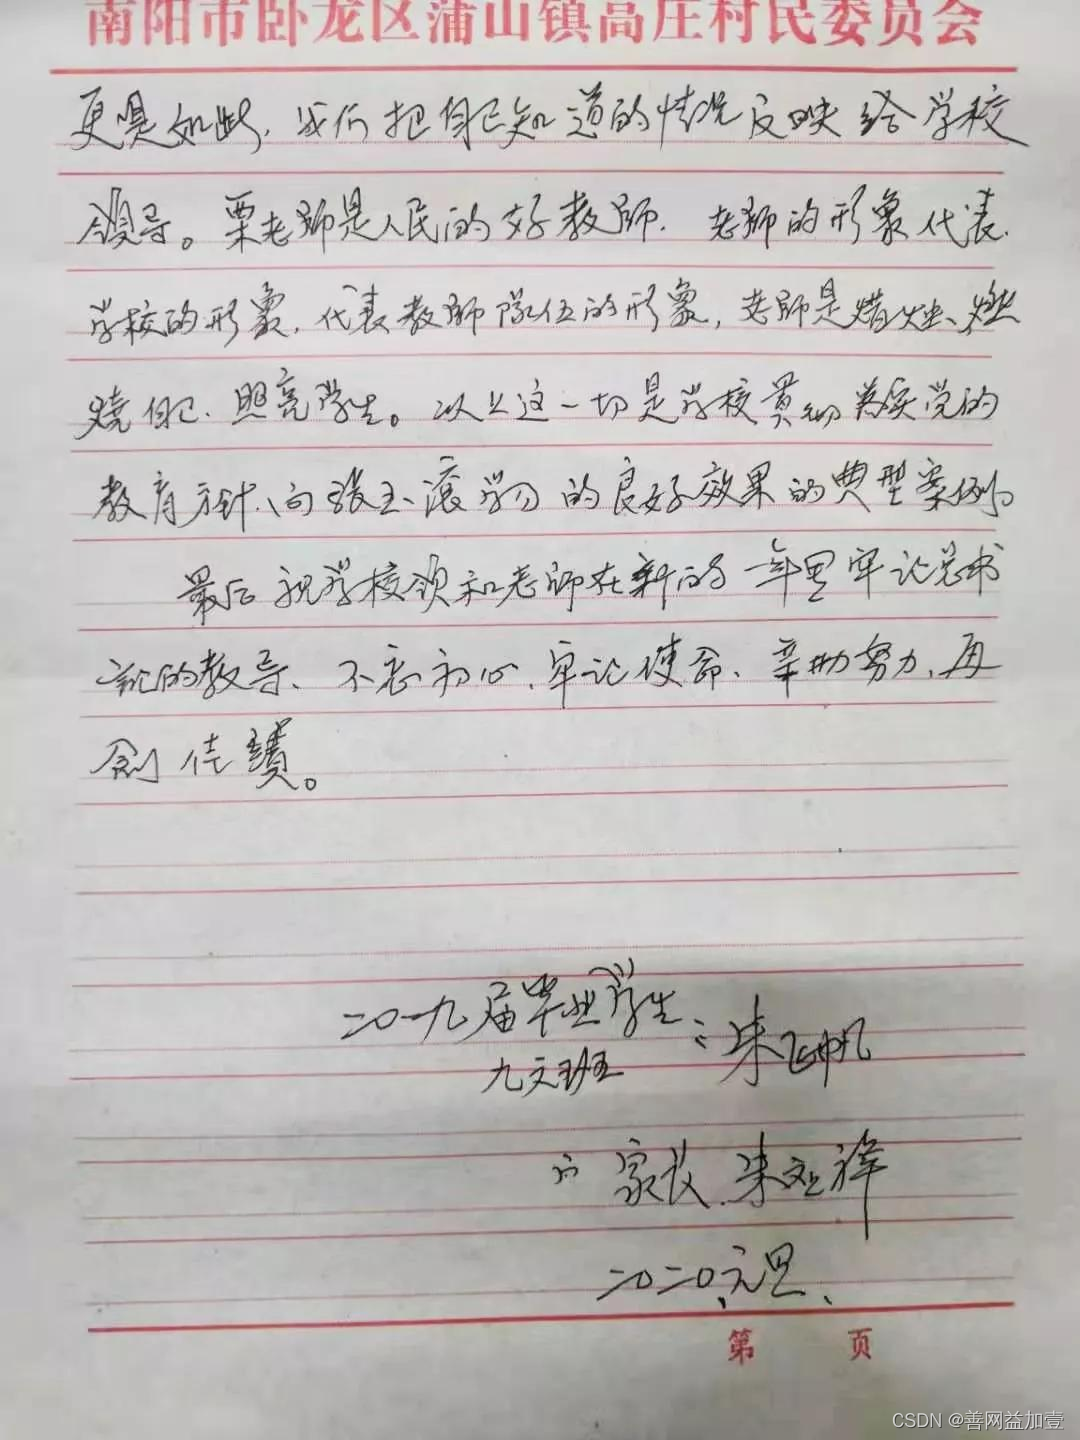 南阳市卧龙区蒲山镇高庄村民委员会
更是如此，我们把自己知道的情况反映给学校
领导。栗老师是人民的好教师．老师的形象代表
学校的形象．代表教师队伍的形象，老师是蜡烛、燃
烧自己．照亮学生。以上这一切是学校贯彻落实党的
教育方针、向张玉滚学习的良好效果的典型案例。
最后祝学校领和老师在新的一年里牢记总书
记的教导、不忘初心．牢记使命、辛勤努力，再
创佳绩。
二〇一九届毕业学生：朱飞帆
九文班
家长．朱
二〇二〇．元旦．
第 页
CSDN @善网益加壹